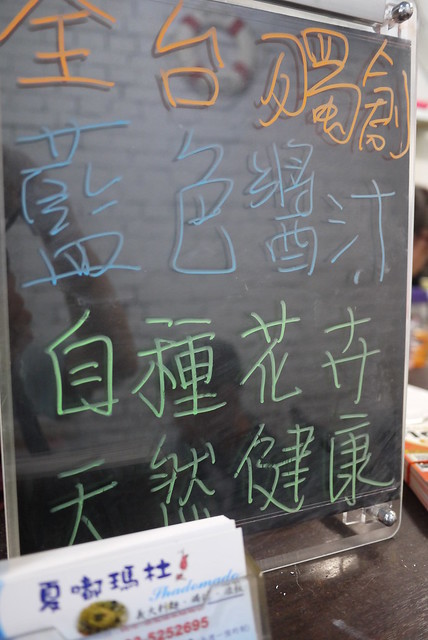 全台獨創
藍色醬汁
自種花卉
天然健康
夏嘟瑪杜
Shademade
義大利麵
5252695